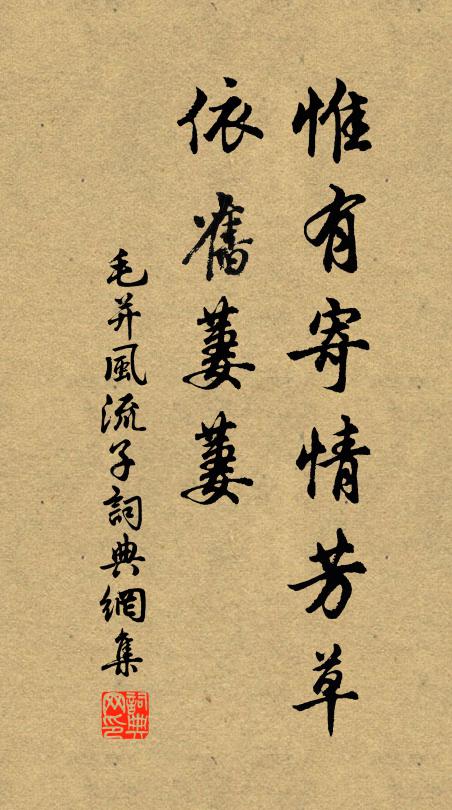 惟有寄情芳草
依舊萋萋
毛并風流子詞典網集
詞典
网印